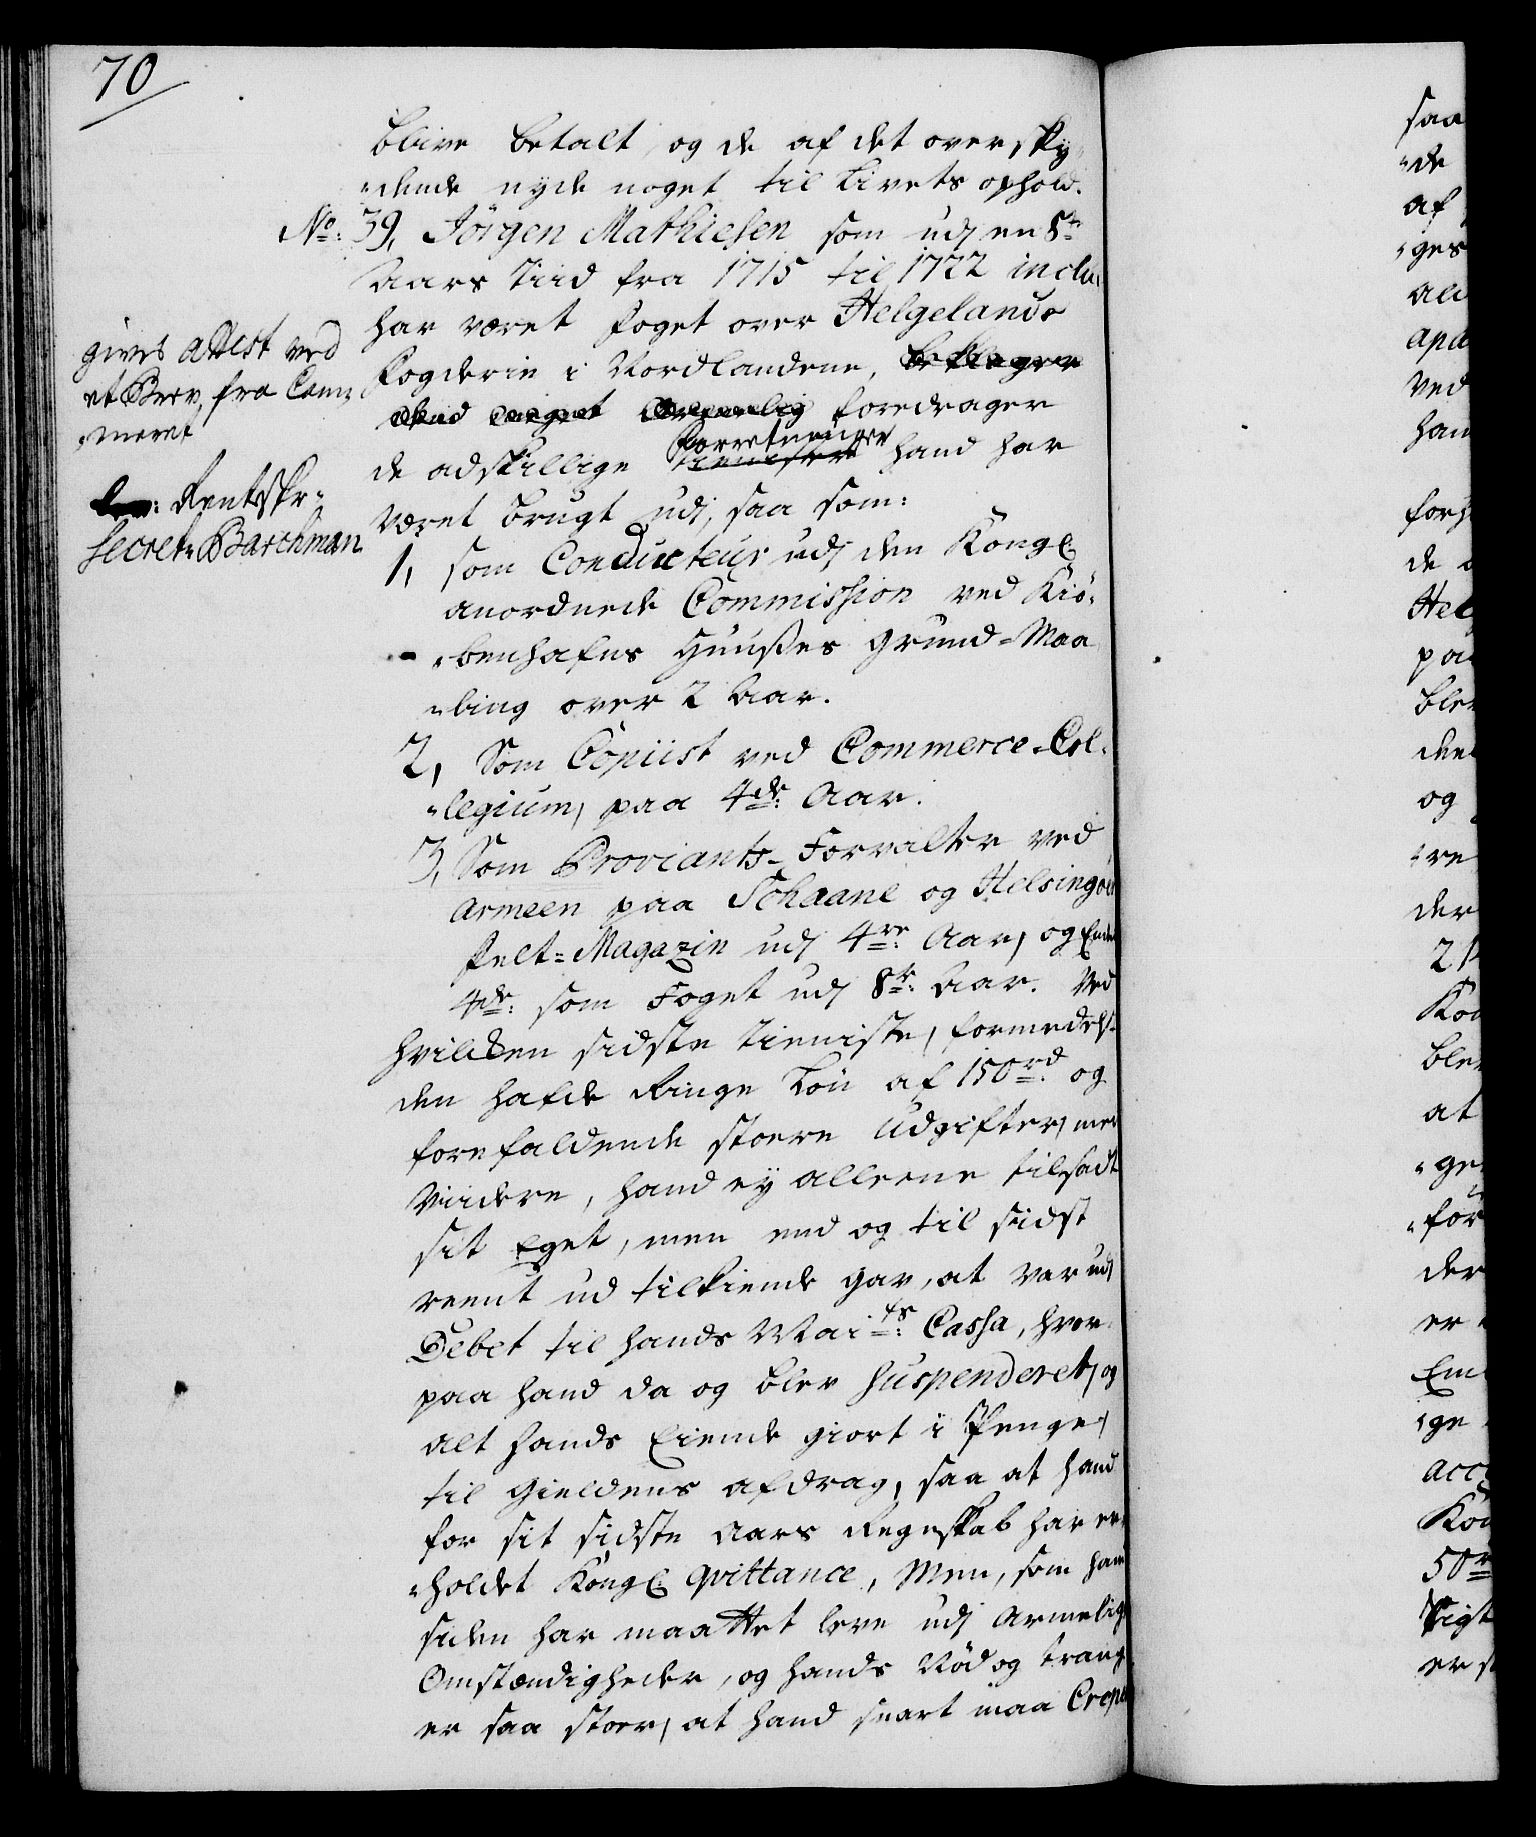 70
blive betalt, og de af det oversky„
„dende nyde noget til Livets ophold.
No: 39, Jörgen Mathiesen som udj en 8te
Aars Tiid fra 1715 til 1722 inclu,
har været foget over Helgelands
Fogderie i Nordlandene, beklager
foredrager
Forretninger
de adskillige tienister hand har
været brugt udj, saa som:
gives attest ved
et Brev, fra Cam„
„meret
Rentskr„
Secret: Barchman
1, som Conducteur udj den Kongl:
anordnede Commission ved Kiö„
„benhafns Huußes Grund-Maa
„ling over 2 Aar.
2, Som Copiist ved Commerce-Col„
„legium, paa 4de: Aar.
3, Som Proviants-Forvalter ved
Armeen paa Schaane og Helsingöer
felt-Magazin udj 4re: Aar, og Endel
4de: som Foget udj 8te: Aar. Ved
hvilcken sidste tieniste, formedelst
den hafde Ringe Lön af 150rd: og
forefaldende stoere Udgifter, med
Viidere, hand ey alleene tilsadt
sit Eget, men end og til sidst
reent ud tilkiende gav, at var udj
Debet til hands Maits: Cassa, hvor„
paa hand da og blev Suspenderet, og
alt hands Eiende giort i Penge,
til Gieldens afdrag, saa at hand
for sit sidste Aars Regnskab har er„
„holdet Kongl: qvittance, Men, som hand
siden har maattet leve udj Armelige
Omstændigheder, og hands Nöd og trang
er saa stoer, at hand snart maa Crepe
saa
„de
af
„ges
ald
apa
Ved
han
for
de
Hel
paa
blev
den
og
„re
der
Kon
blev
at
„ge
„for
der
er
„ge
acc
Kon
50rd
er